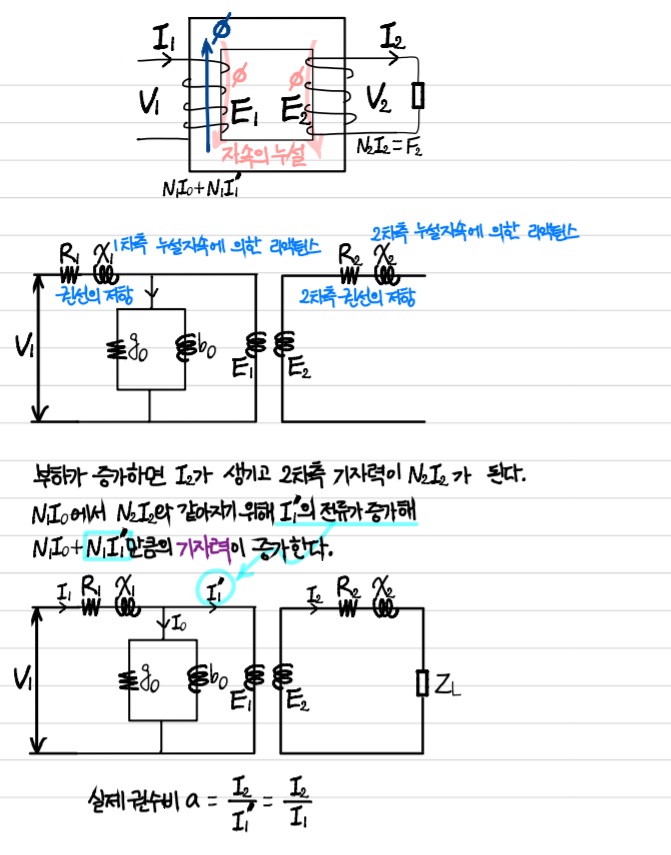 ϕ
I₁ I₂
ϕ ϕ
V₁ E₁ E₂ V₂
자속의 누설
N₂I₂=F₂
N₁I₀+N₁I₁'
1차측 누설자속에 의한 리액턴스
2차측 누설자속에 의한 리액턴스
R₁ X₁ R₂ X₂
권선의 저항 2차측 권선의 저항
V₁ g₀ b₀ E₁ E₂
부하가 증가하면 I₂가 생기고 2차측 기자력이 N₂I₂가 된다.
N₁I₀에서 N₂I₂와 같아지기 위해 I₁'의 전류가 증가해
N₁I₀+N₁I₁'만큼의 기자력이 증가한다.
I₁ R₁ X₁ I₁' I₂ R₂ X₂
I₀
V₁ g₀ b₀ E₁ E₂ ZL
실제 권수비 a = I₂/I₁' = I₂/I₁